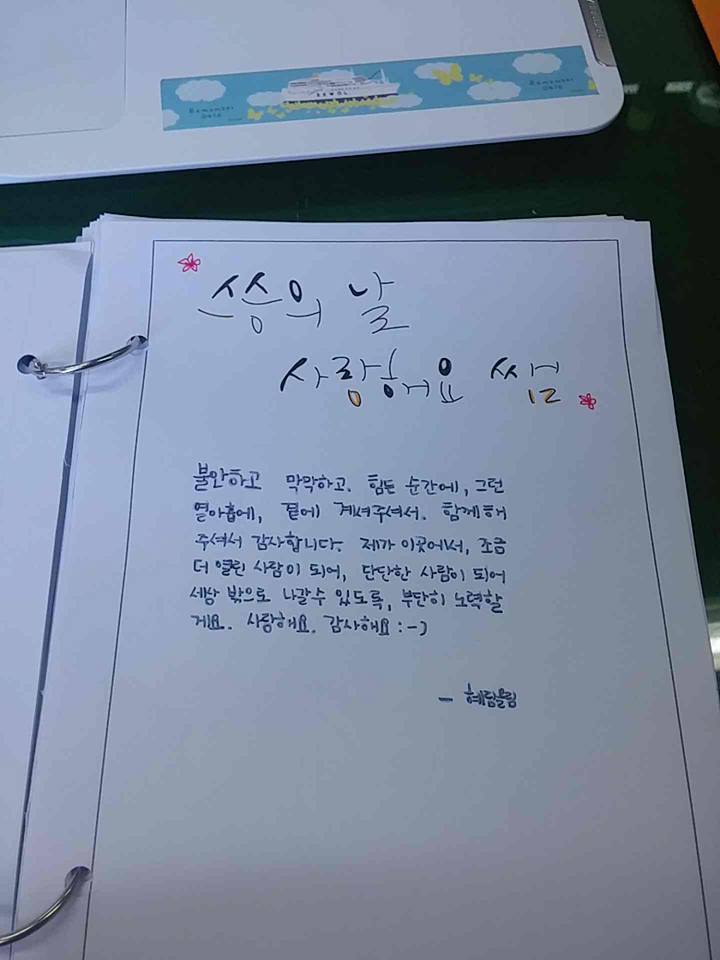 Remember
0416
SEWOL
Remember
0416
쓰승의 날
사랑해요 쌤
불안하고 막막하고. 힘든 순간에, 그런
열아홉에, 곁에 계셔주셔서. 함께해
주셔서 감사합니다. 제가 이곳에서, 조금
더 열린 사람이 되어, 단단한 사람이 되어
세상 밖으로 나갈수 있도록, 부단히 노력할
게요. 사랑해요. 감사해요 :-)
- 혜담올림